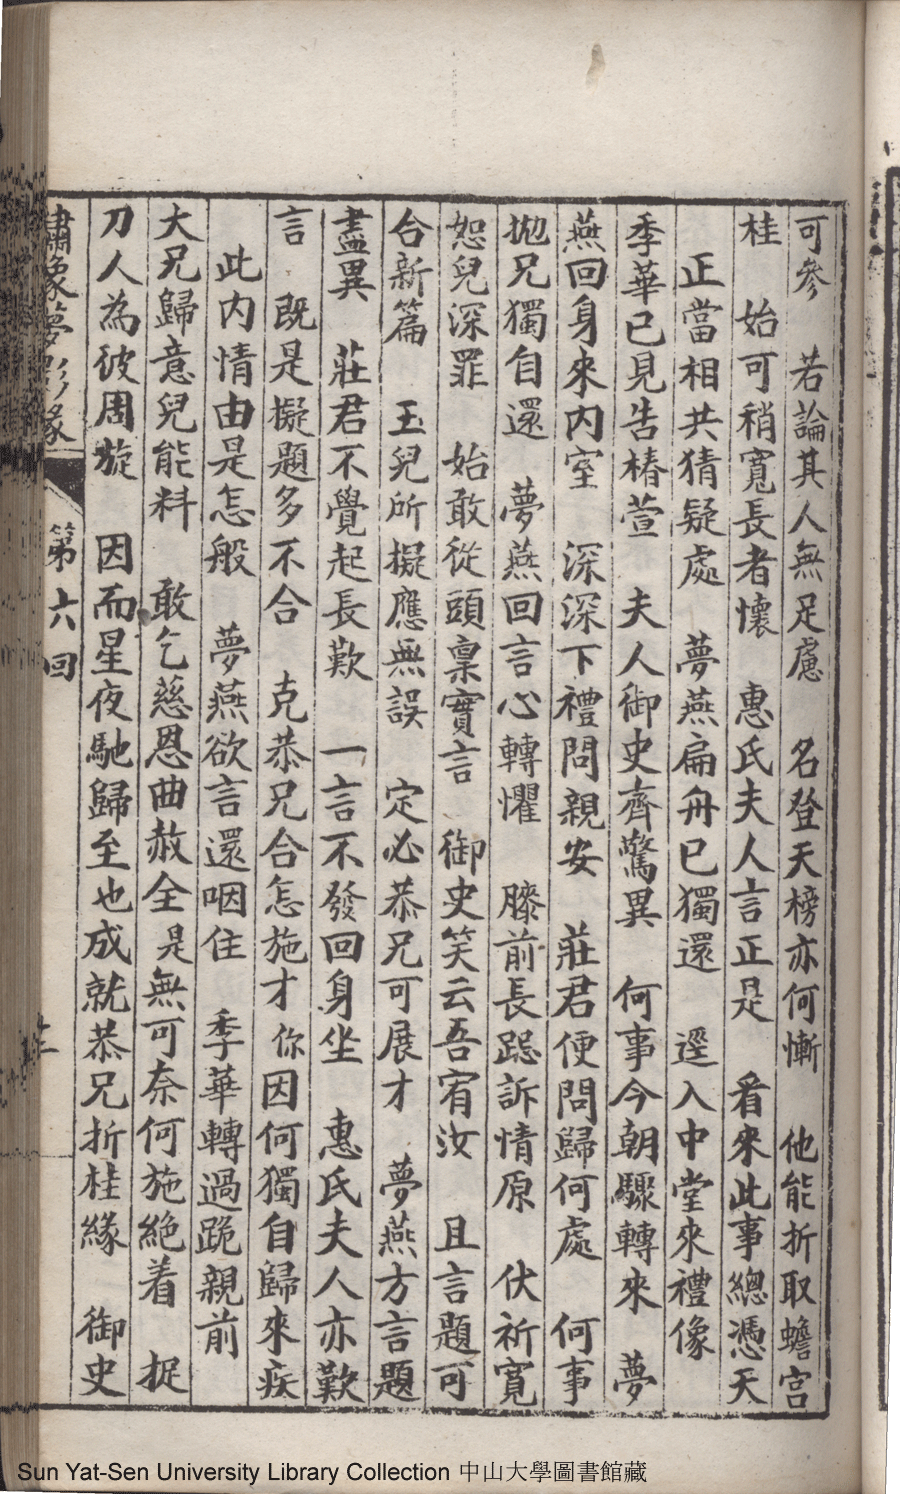 可參　若論其人無足慮　名登天榜亦何慚　他能折取蟾宮
桂　始可稍寬長者懷　惠氏夫人言正是　看來此事總憑天
正當相共猜疑處　夢燕扁舟已獨還　逕入中堂來禮像
季華已見告椿萱　夫人御史齊驚異　何事今朝驟轉來　夢
燕回身來內室　深深下禮問親安　莊君便問歸何處　何事
拋兄獨自還　夢燕回言心轉懼　膝前長跽訴情原　伏祈寬
恕兒深罪　始敢從頭稟實言　御史笑云吾宥汝　且言題可
合新篇　玉兒所擬應無誤　定必恭兄可展才　夢燕方言題
盡異　莊君不覺起長歎　一言不發回身坐　惠氏夫人亦歎
言　既是擬題多不合　克恭兄合怎施才　你因何獨自歸來疾
此內情由是怎般　夢燕欲言還咽住　季華轉過跪親前
大兄歸意兒能料　敢乞慈恩曲赦全　是無可奈何施絕着　捉
刀人為彼周旋　因而星夜馳歸至　也成就恭兄折桂緣　御史
夢影緣　第六回
Sun Yat-Sen University Library Collection 中山大學圖書館藏